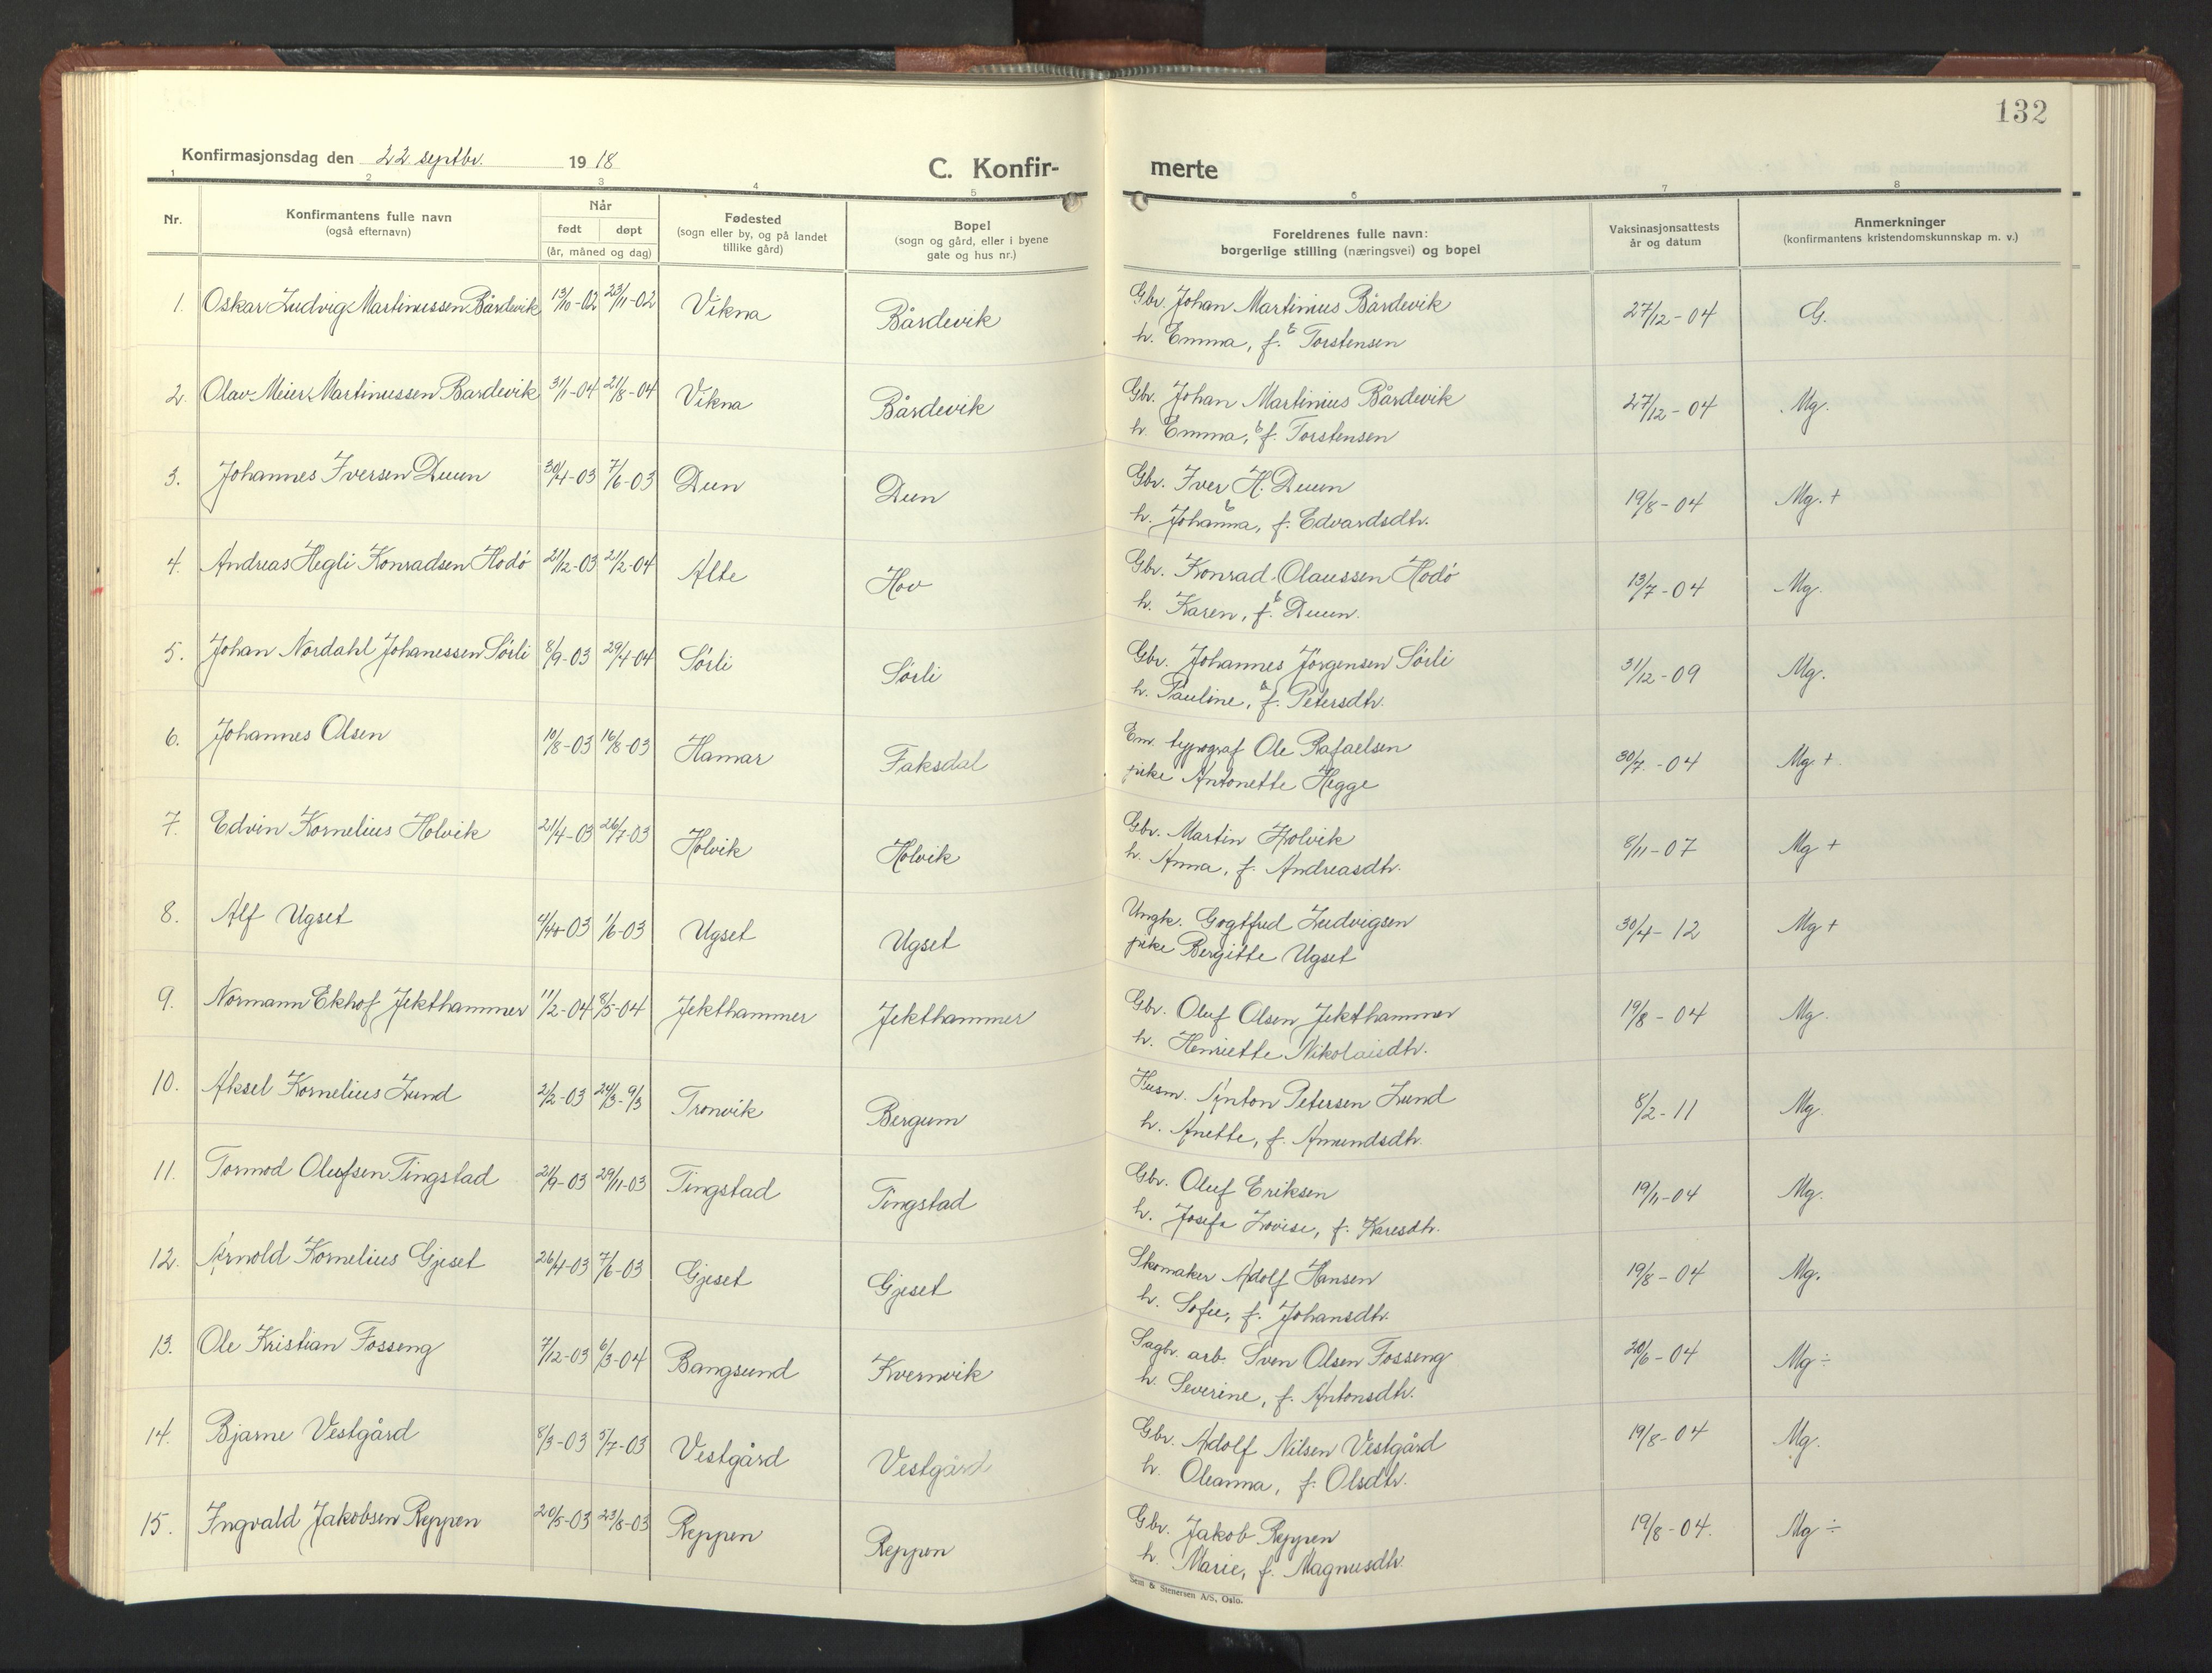 132
Konfirmasjonsdag den 22 septbr. 1918
C. Konfir- merte
1 2 3 4 5 6 7 8
Nr. | Konfirmantens fulle navn (også efternavn) | Når født døpt (år, måned og dag) | Fødested (sogn eller by, og på landet tillike gård) | Bopel (sogn og gård, eller i byene gate og hus nr.) | Foreldrenes fulle navn: borgerlige stilling (næringsvei) og bopel | Vaksinasjonsattests år og datum | Anmerkninger (konfirmantens kristendomskunnskap m. v.)
1. Oskar Ludvig Martinussen Bårdevik 13/10-02 23/11-02 Vikna Bårdevik Gbr. Johan Martinius Bårdevik 27/12-04 G.
h. Emma, f. Torstensen
2. Olav Meier Martinussen Bardevik 31/1-04 21/8-04 Vikna Bårdevik Gbr. Johan Martinius Bårdevik 27/12-04 Mg.
h. Emma, f. Torstensen
3. Johannes Iversen Duun 30/4-03 7/6-03 Dun Dun Gbr. Iver H. Duun 19/8-04 Mg. +
h. Johanna, f. Edvardsdtr.
4. Andreas Hegli Konradsen Hodø 21/12-03 21/2-04 Alte Hov Gbr. Konrad Olaussen Hodø 13/7-04 Mg.
h. Karen, f. Duun.
5. Johan Nordahl Johanessen Sørli 8/9-03 29/4-04 Sørli Sørli Gbr. Johannes Jørgensen Sørli 31/12-09 Mg.
h. Pauline, f. Petersdtr.
6. Johannes Olsen 10/8-03 16/8-03 Hamar Faksdal Em. typograf Ole Rafaelsen 30/7-04 Mg +
pike Antonette Hegge
7. Edvin Kornelius Holvik 21/4-03 26/7-03 Holvik Holvik Gbr. Martin Holvik 8/11-07 Mg +
h. Anna, f. Andreasdtr.
8. Alf Ugset 1/6-03 Ugset Ugset Ungk. Gogtfred Ludvigsen 30/4-12 Mg +
pike Bergitte Ugset
9. Normann Ekhof Jekthammer 11/2-04 8/5-04 Jekthammer Jekthammer Gbr. Oluf Olsen Jekthammer 19/8-04 Mg.
h. Henriette Nikolaisdtr.
10. Aksel Kornelius Lund 2/2-03 24/3-9/3 Tronvik Bergum Husm. Anton Petersen Lund 8/2-11 Mg.
h. Anette, f. Amundsdtr.
11. Tormod Olufsen Tingstad 21/9-03 29/11-03 Tingstad Tingstad Gbr. Oluf Eriksen 19/11-04 Mg.
h. Josefa Lovise, f. Karesdtr.
12. Arnold Kornelius Gjeset 26/4-03 7/6-03 Gjeset Gjeset Skomaker Adolf Hansen 19/8-04 Mg.
h. Sofie, f. Johansdtr.
13. Ole Kristian Fosseng 7/12-03 6/3-04 Bangsund Kvernvik Sagbr. arb. Sven Olsen Fosseng 20/6-04 Mg ÷
h. Severine, f. Antonsdtr.
14. Bjarne Vestgård 8/3-03 5/7-03 Vestgård Vestgård Gbr. Adolf Nilsen Vestgård 19/8-04 Mg.
h. Oleanna, f. Olsdtr.
15. Ingvald Jakobsen Reppen 20/5-03 23/8-03 Reppen Reppen Gbr. Jakob Reppen 19/8-04. Mg ÷
h. Marie, f. Magnusdtr.
Sem & Stenersen A/S, Oslo.